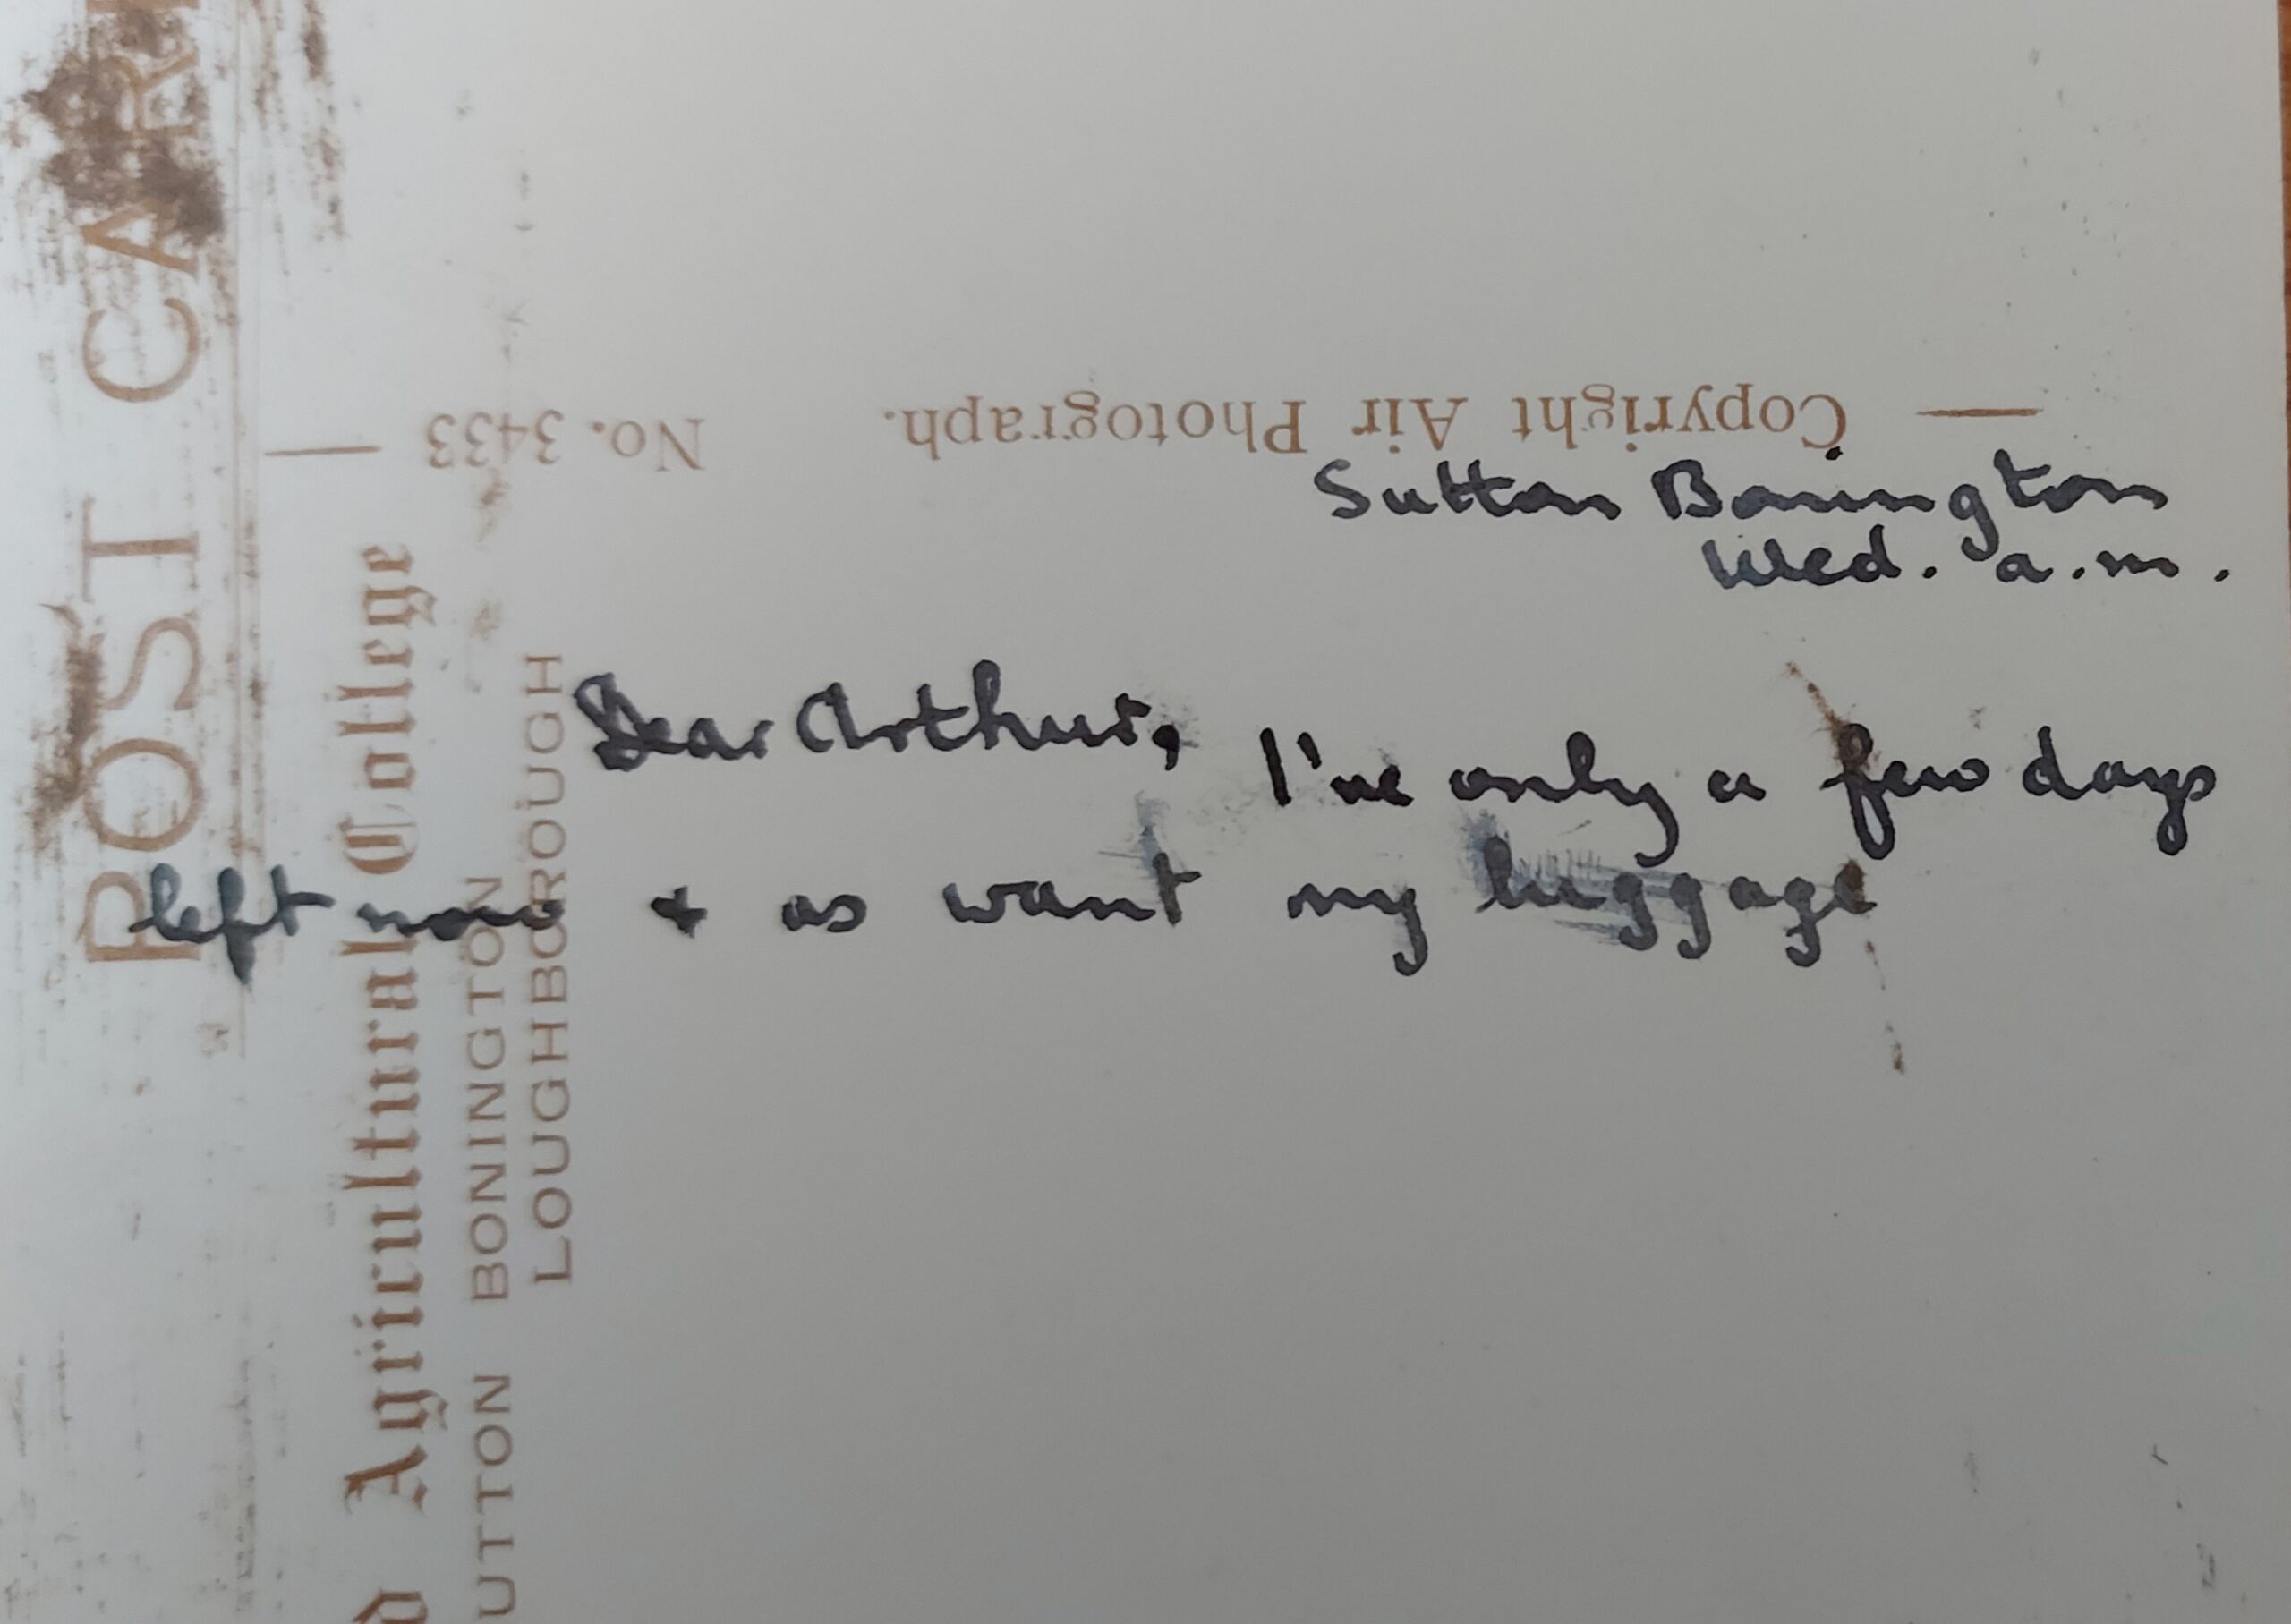 POST CARD
d Agricultural College
UTTON BONINGTON
LOUGHBOROUGH
Copyright Air Photograph. No. 3433
Sutton Bonington
Wed. a.m.
Dear Arthur, I've only a few days
left now & as want my luggage